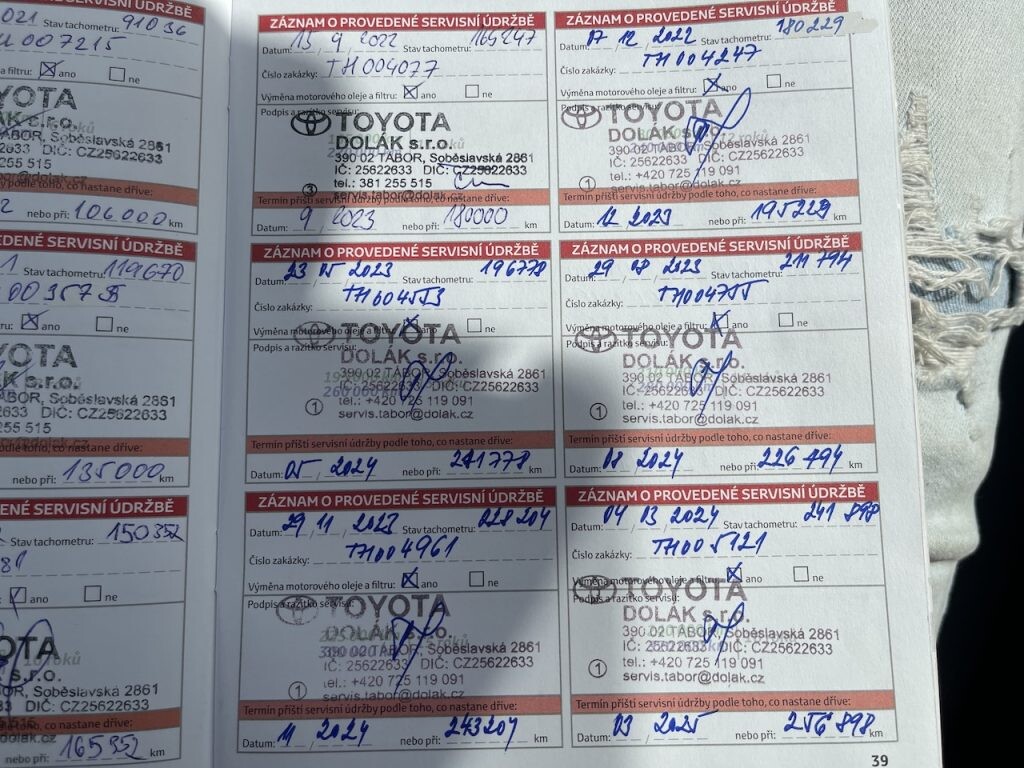 021 Stav tachometru: 91036
007215
a filtru: ano ne
OYOTA
ÁK s.r.o.
TÁBOR, Soběslavská 2861
2633 DIČ: CZ25622633
255 515
@dolak.cz
podle toho, co nastane dříve:
2 nebo při: 106000 km
DENÉ SERVISNÍ ÚDRŽBĚ
1 Stav tachometru: 119670
ru: ano ne
OYOTA
K s.r.o.
ÁBOR, Soběslavská 2861
DIČ: CZ25622633
55 515
dolak.cz
le toho, co nastane dříve:
nebo při: 135000 km
ENÉ SERVISNÍ ÚDRŽBĚ
Stav tachometru: 150352
ano ne
OTA
s.r.o.
OR, Soběslavská 2861
DIČ: CZ25622633
515
lak.cz
ho, co nastane dříve:
165352 km
ZÁZNAM O PROVEDENÉ SERVISNÍ ÚDRŽBĚ
Datum: 15 / 9 / 2022 Stav tachometru: 165247
Číslo zakázky: TH004077
Výměna motorového oleje a filtru: ano ne
Podpis a razítko servisu:
TOYOTA
DOLÁK s.r.o.
390 02 TÁBOR, Soběslavská 2861
IČ: 25622633 DIČ: CZ25622633
3 tel.: 381 255 515
servis.tabor@dolak.cz
Termín příští servisní údržby podle toho, co nastane dříve:
Datum: 9 / 2023 nebo při: 180000 km
ZÁZNAM O PROVEDENÉ SERVISNÍ ÚDRŽBĚ
Datum: 07 / 12 / 2022 Stav tachometru: 180229
Číslo zakázky: TH004247
Výměna motorového oleje a filtru: ano ne
Podpis a razítko servisu:
TOYOTA
DOLÁK s.r.o.
390 02 TÁBOR, Soběslavská 2861
IČ: 25622633 DIČ: CZ25622633
1 tel.: +420 725 119 091
servis.tabor@dolak.cz
Termín příští servisní údržby podle toho, co nastane dříve:
Datum: 12 / 2023 nebo při: 195229 km
ZÁZNAM O PROVEDENÉ SERVISNÍ ÚDRŽBĚ
Datum: 23 / 05 / 2023 Stav tachometru: 196778
Číslo zakázky: TH004553
Výměna motorového oleje a filtru: ano ne
Podpis a razítko servisu:
TOYOTA
DOLÁK s.r.o.
390 02 TÁBOR, Soběslavská 2861
IČ: 25622633 DIČ: CZ25622633
1 tel.: +420 725 119 091
servis.tabor@dolak.cz
Termín příští servisní údržby podle toho, co nastane dříve:
Datum: 05 / 2024 nebo při: 211778 km
ZÁZNAM O PROVEDENÉ SERVISNÍ ÚDRŽBĚ
Datum: 29 / 08 / 2023 211794
Číslo zakázky: TH004755
Výměna motorového oleje a filtru: ano ne
Podpis a razítko servisu:
TOYOTA
DOLÁK s.r.o.
390 02 TÁBOR, Soběslavská 2861
IČ: 25622633 DIČ: CZ25622633
1 tel.: +420 725 119 091
servis.tabor@dolak.cz
Termín příští servisní údržby podle toho, co nastane dříve:
Datum: 08 / 2024 nebo při: 226794 km
ZÁZNAM O PROVEDENÉ SERVISNÍ ÚDRŽBĚ
Datum: 29 / 11 / 2023 Stav tachometru: 228204
Číslo zakázky: TH004961
Výměna motorového oleje a filtru: ano ne
Podpis a razítko servisu:
TOYOTA
DOLÁK s.r.o.
390 02 TÁBOR, Soběslavská 2861
IČ: 25622633 DIČ: CZ25622633
1 tel.: +420 725 119 091
servis.tabor@dolak.cz
Termín příští servisní údržby podle toho, co nastane dříve:
Datum: 11 / 2024 nebo při: 243204 km
ZÁZNAM O PROVEDENÉ SERVISNÍ ÚDRŽBĚ
Datum: 04 / 03 / 2024 Stav tachometru: 241898
Číslo zakázky: TH005121
Výměna motorového oleje a filtru: ano ne
Podpis a razítko servisu:
TOYOTA
DOLÁK s.r.o.
390 02 TÁBOR, Soběslavská 2861
IČ: 25622633 DIČ: CZ25622633
1 tel.: +420 725 119 091
servis.tabor@dolak.cz
Termín příští servisní údržby podle toho, co nastane dříve:
Datum: 03 / 2025 nebo při: 256898 km
39